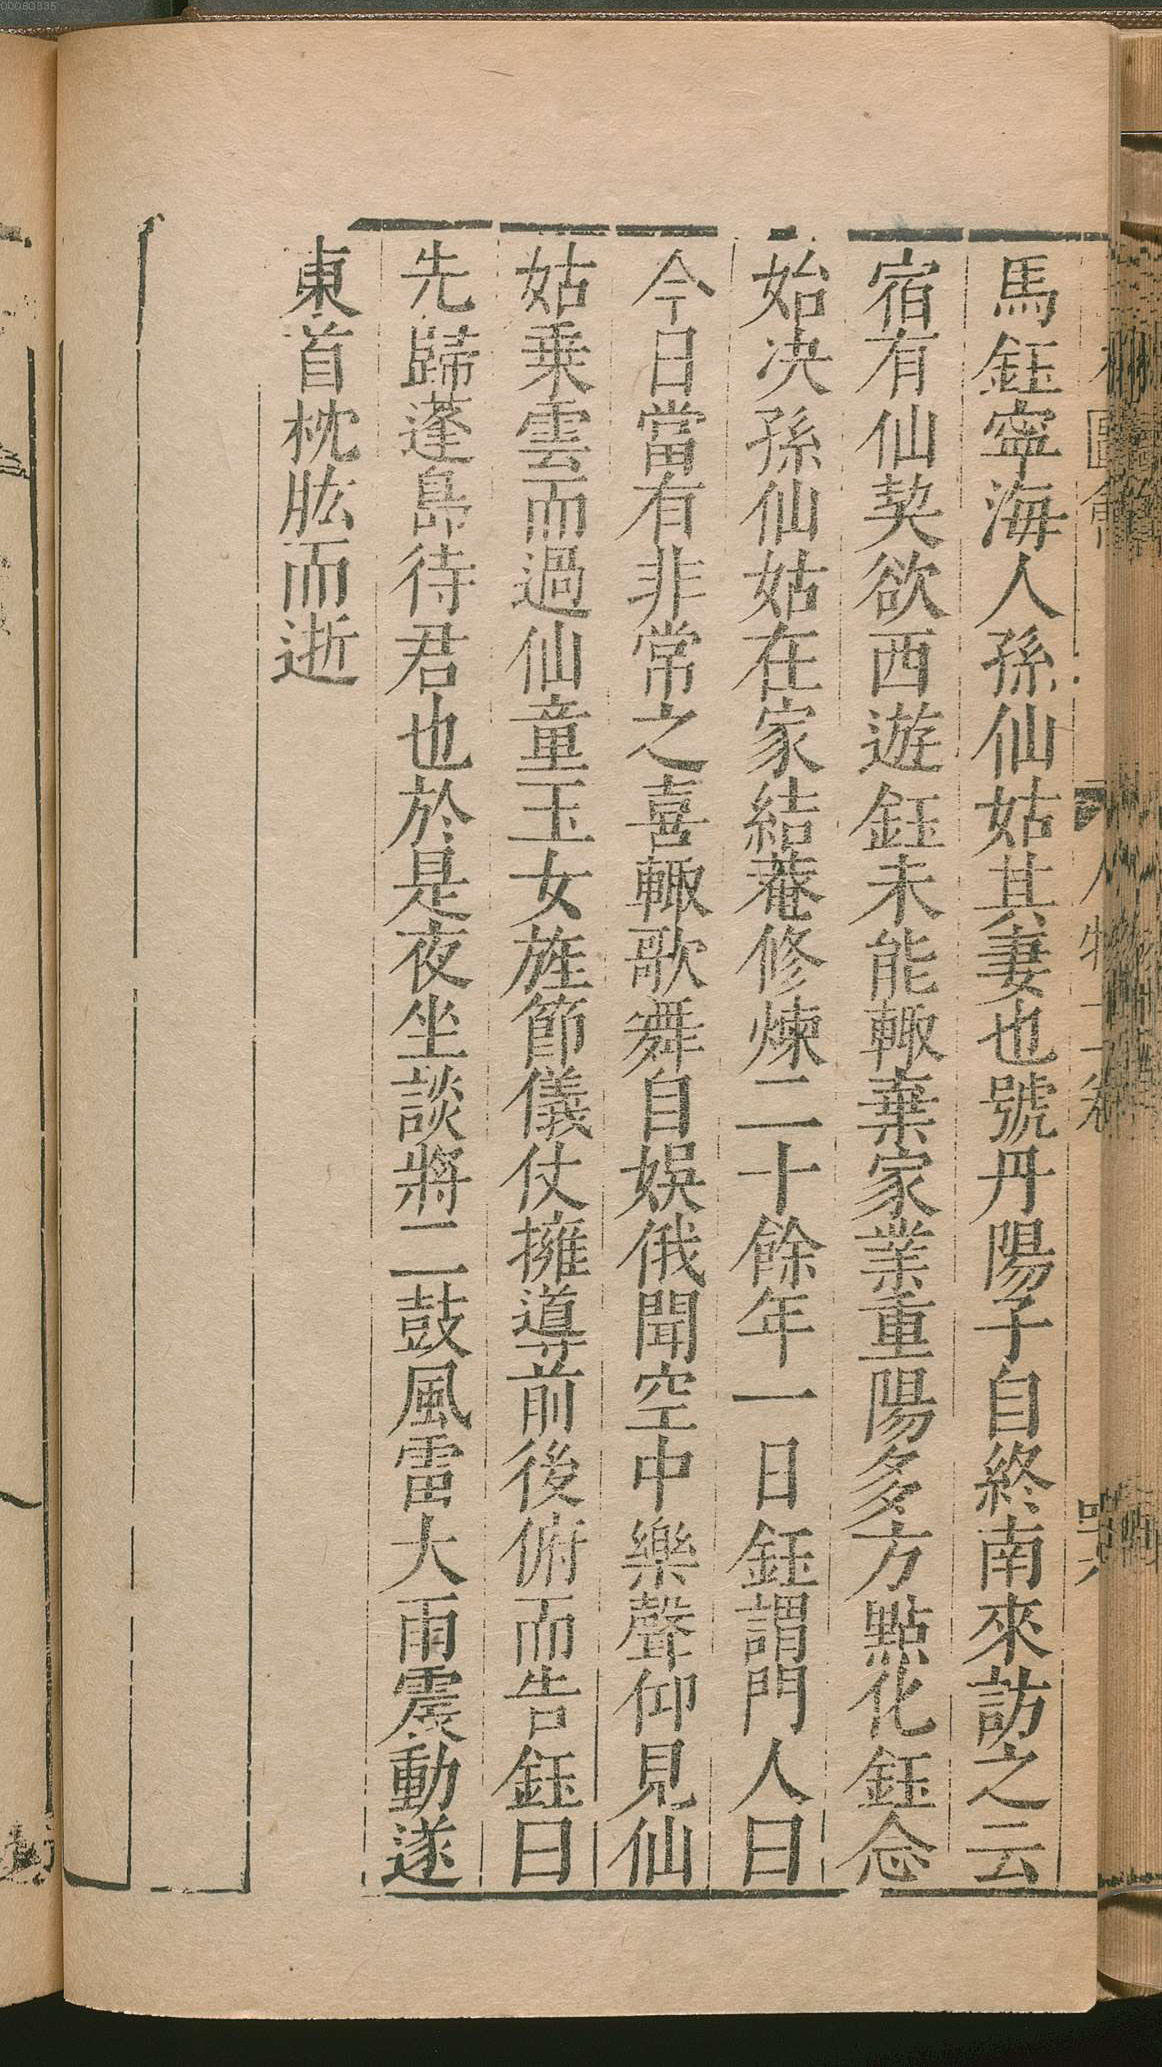 馬鈺寧海人孫仙姑其妻也號丹陽子自終南來訪之云
宿有仙契欲西遊鈺未能輙棄家業重陽多方點化鈺念
始决孫仙姑在家結菴修煉二十餘年一日鈺謂門人曰
今日當有非常之喜輙歌舞自娛俄聞空中樂聲仰見仙
姑乗雲而過仙童玉女旌節儀仗擁導前後俯而告鈺曰
先歸蓬島待君也於是夜坐談將二鼓風雷大雨震動遂
東首枕肱而逝
00080335